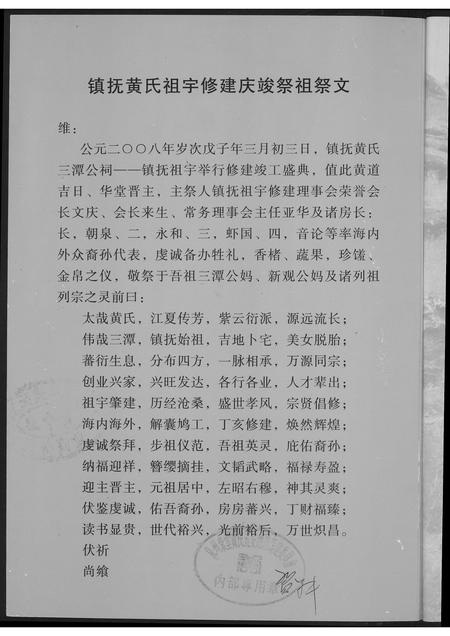 镇抚黄氏祖宇修建庆竣祭祖祭文
维：
公元二〇〇八年岁次戊子年三月初三日，镇抚黄氏
三潭公祠——镇抚祖宇举行修建竣工盛典，值此黄道
吉日、华堂晋主，主祭人镇抚祖宇修建理事会荣誉会
长文庆、会长来生、常务理事会主任亚华及诸房长：
长，朝泉、二，永和、三，虾国、四，音论等率海内
外众裔孙代表，虔诚备办牲礼，香楮、蔬果，珍馐、
金帛之仪，敬祭于吾祖三潭公妈、新观公妈及诸列祖
列宗之灵前曰：
太哉黄氏，江夏传芳，紫云衍派，源远流长；
伟哉三潭，镇抚始祖，吉地卜宅，美女脱胎；
蕃衍生息，分布四方，一脉相承，万源同宗；
创业兴家，兴旺发达，各行各业，人才辈出；
祖宇肇建，历经沧桑，盛世孝风，宗贤倡修；
海内海外，解囊鸠工，丁亥修建，焕然辉煌；
虔诚祭拜，步祖仪范，吾祖英灵，庇佑裔孙；
纳福迎祥，簪缨摘挂，文韬武略，福禄寿盈；
迎主晋主，元祖居中，左昭右穆，神其灵爽；
伏鉴虔诚，佑吾裔孙，房房蕃兴，丁财福臻；
读书显贵，世代裕兴，光前裕后，万世炽昌。
伏祈
尚飨
内部专用章